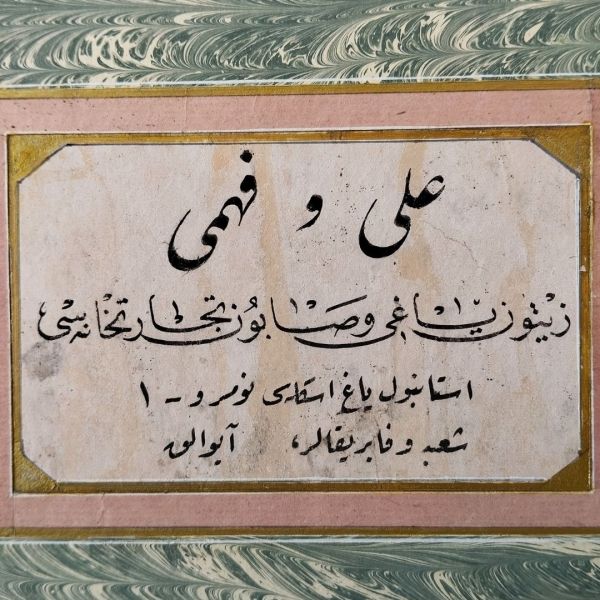 علی و فهمی
زیتون یاغی و صابون تجارتخانه‌سی
استانبول یاغ اسکله‌سی نومرو - ۱
شعبه و فابریقالر، آیوالق